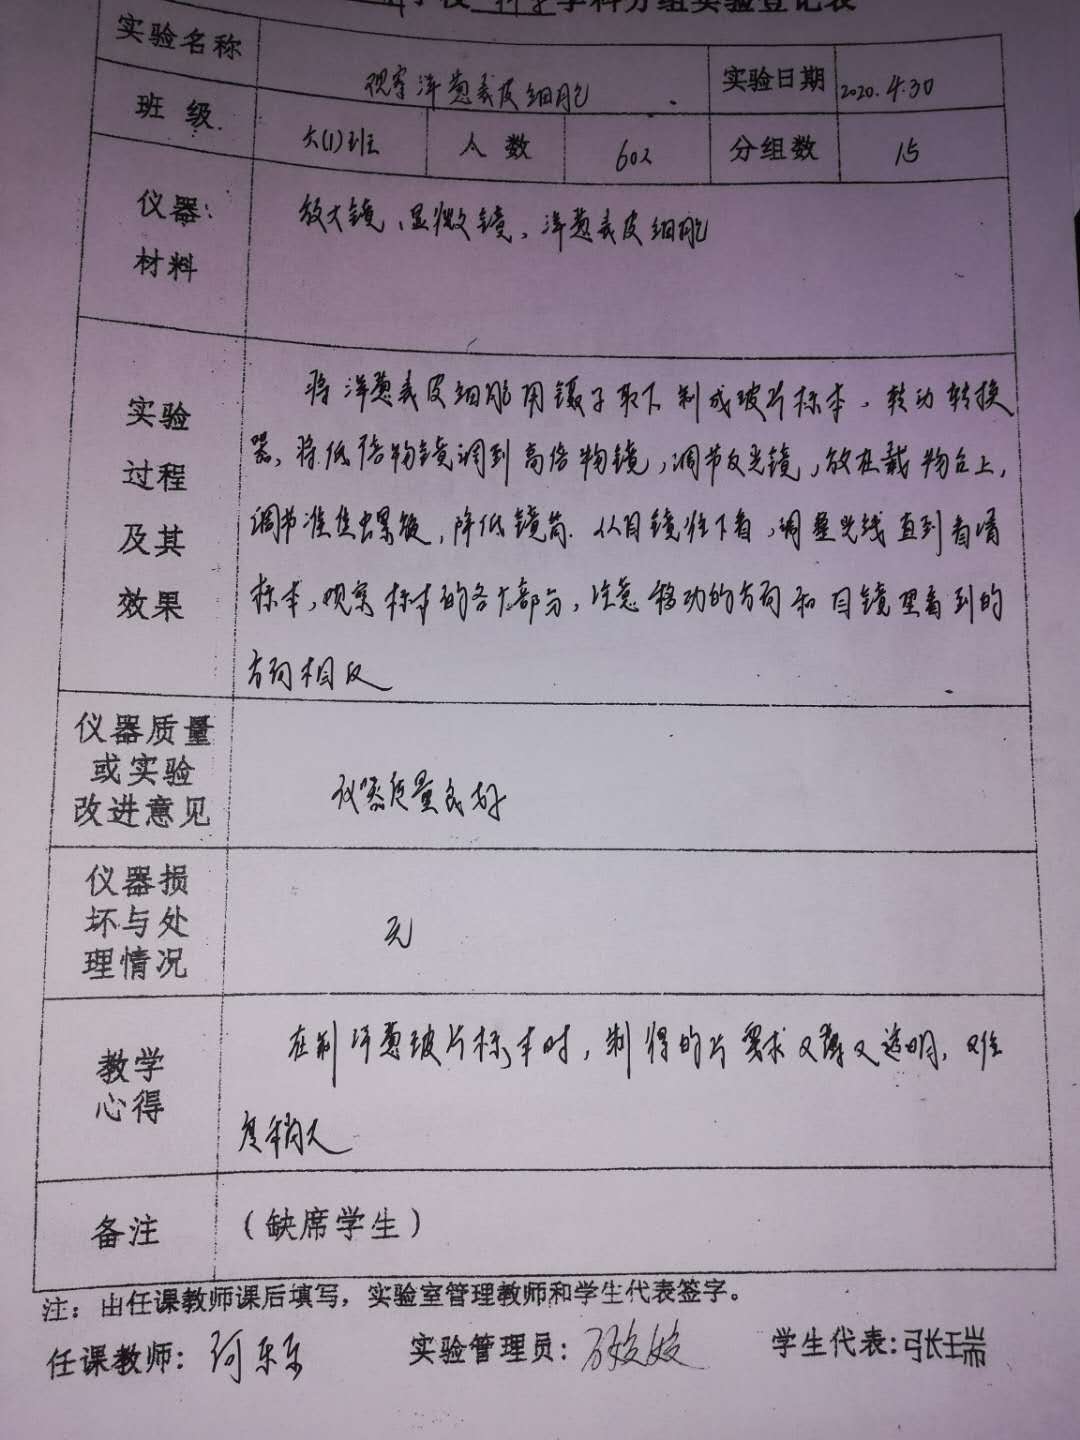 学科分组实验登记表
实验名称 观察洋葱表皮细胞 实验日期 2020.4.30
班级 六(1)班 人数 602 分组数 15
仪器: 放大镜、显微镜、洋葱表皮细胞
材料
实验 将洋葱表皮细胞用镊子取下制成玻片标本,转动转换
过程 器,将低倍物镜调到高倍物镜,调节反光镜,放在载物台上,
及其 调节准焦螺旋,降低镜筒.从目镜往下看,调整光线直到看清
效果 标本,观察标本的各个部分,注意移动的方向和目镜里看到的
方向相反
仪器质量
或实验 仪器质量良好
改进意见
仪器损
坏与处 无
理情况
教学 在制洋葱玻片标本时,制得的片要求又薄又透明,难
心得 度稍大
备注 (缺席学生)
注:由任课教师课后填写,实验室管理教师和学生代表签字。
任课教师: 实验管理员: 学生代表:张瑞